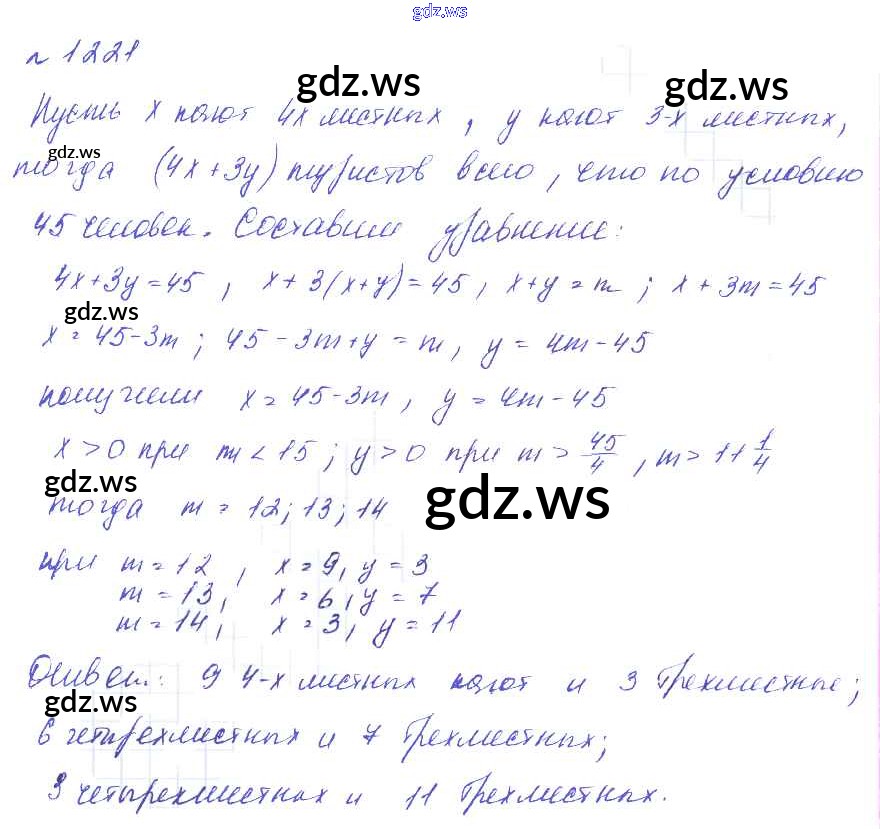 gdz.ws
№ 1221
gdz.ws gdz.ws
Пусть x кают 4х местных, y кают 3-х местных,
gdz.ws
тогда (4x+3y) туристов всего, что по условию
45 человек. Составим уравнение:
4x+3y=45, x+3(x+y)=45, x+y=m; x+3m=45
gdz.ws
x=45-3m; 45-3m+y=m, y=4m-45
получили x=45-3m, y=4m-45
x>0 при m<15; y>0 при m>45/4, m>11 1/4
gdz.ws gdz.ws
тогда m=12; 13; 14
при m=12, x=9, y=3
m=13, x=6, y=7
m=14, x=3, y=11
Ответ: 9 4-х местных кают и 3 трехместные;
gdz.ws
6 четырехместных и 7 трехместных;
3 четырехместных и 11 трехместных.